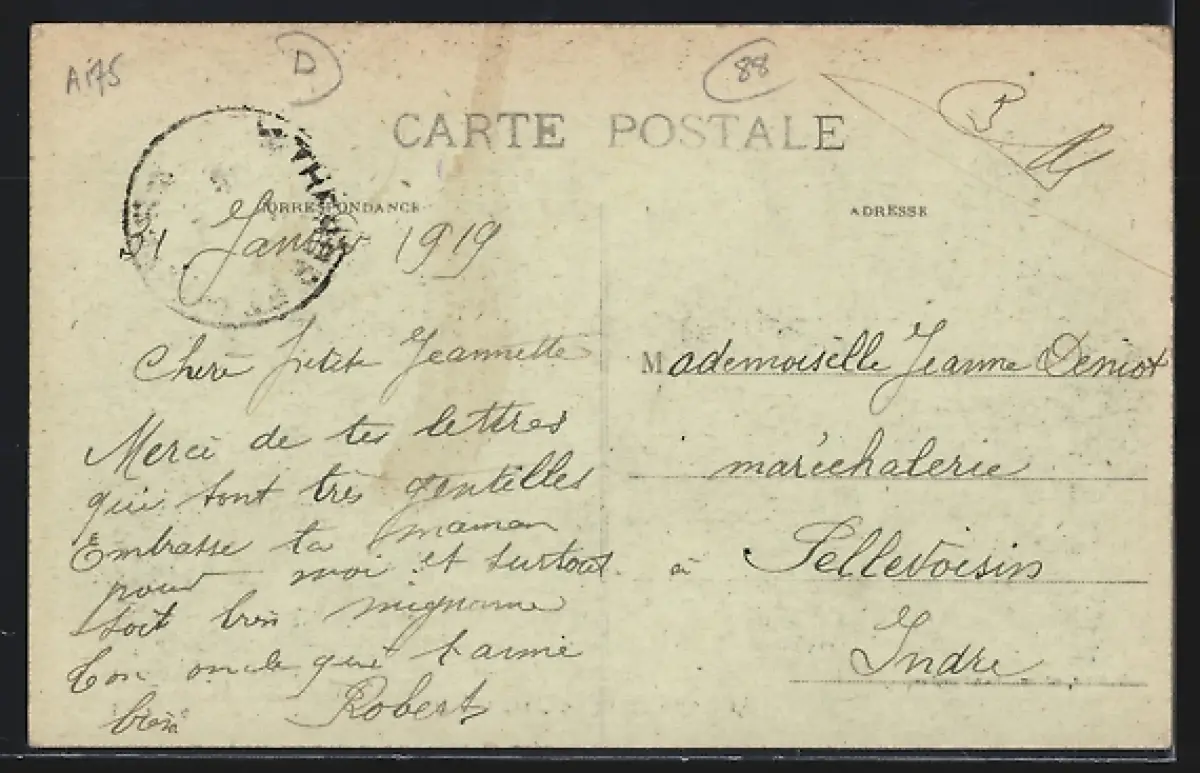 A175
D
88
B
CARTE POSTALE
CORRESPONDANCE
ADRESSE
Janvier 1919
Chère petite Jeannette
Merci de tes lettres
qui sont très gentilles
Embrasse ta maman
pour moi et surtout
soit bien mignonne
Ton oncle qui t'aime
bien Robert
Mademoiselle Jeanne Deniot
maréchalerie
à Pellevoisin
Indre